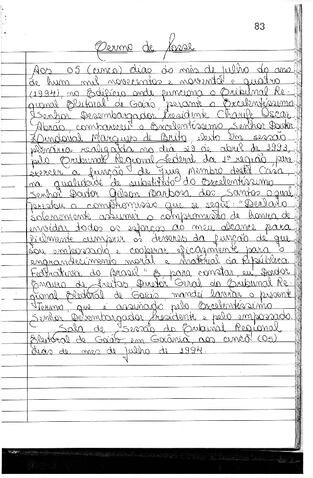 83
Termo de Posse
Aos 05 (cinco) dias do mês de julho do ano
de hum mil novecentos e noventa e quatro
(1994), no Edifício onde funciona o Tribunal Re-
gional Eleitoral de Goiás, perante o Excelentíssimo
Senhor Desembargador Presidente Charife Oscar
Abrão, compareceu o Excelentíssimo Senhor Doutor
Lindoval Marques de Brito eleito em sessão
plenária realizada no dia 29 de abril de 1993,
pelo Tribunal Regional Federal da 1ª região, para
exercer a função de Juiz Membro desta Casa,
na qualidade de substituto do Excelentíssimo
Senhor Doutor Gilson Barbosa dos Santos o qual
prestou o compromisso que se segue: "Declaro
solenemente assumir o compromisso de honra de
envidar todos os esforços ao meu alcance para
fielmente cumprir os deveres da função de que
sou empossado e cooperar eficazmente para o
engrandecimento moral e material da República
Federativa do Brasil". E para constar eu, Doutor
de Freitas Diretor Geral do Tribunal Re-
gional Eleitoral de Goiás mandei lavrar o presente
Termo, que é assinado pelo Excelentíssimo
Senhor Desembargador Presidente e pelo empossado.
Sala de Sessão do Tribunal Regional
Eleitoral de Goiás em Goiânia, aos cinco (05)
dias do mês de julho de 1994